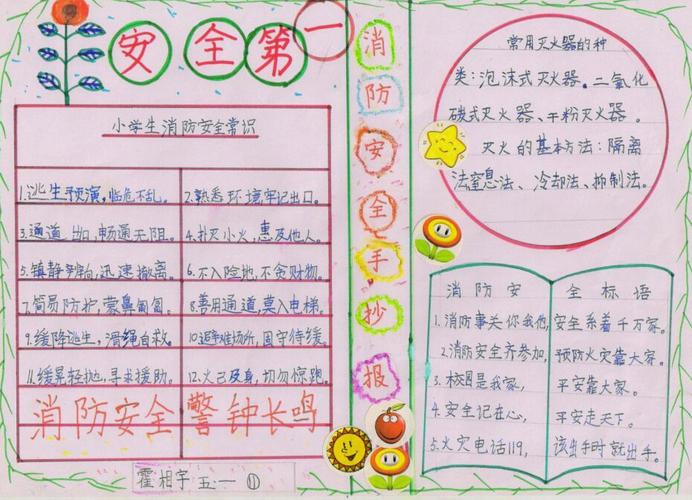 安全第一
小学生消防安全常识
1.逃生预演,临危不乱。
2.熟悉环境,牢记出口。
3.通道出口,畅通无阻。
4.扑灭小火,惠及他人。
5.镇静辨向,迅速撤离。
6.不入险地,不贪财物。
7.简易防护,蒙鼻匍匐。
8.善用通道,莫入电梯。
9.缓降逃生,滑绳自救。
10避难场所,固守待缓。
11.缓晃轻抛,寻求援助。
12.火已及身,切勿惊跑。
消防安全 警钟长鸣
霍相宇 五·一 ①
消防安全手抄报
常用灭火器的种
类:泡沫式灭火器。二氧化
碳式灭火器、干粉灭火器。
灭火的基本方法:隔离
法窒息法、冷却法、抑制法。
消防安全标语
1.消防事关你我他,安全系着千万家。
2.消防安全齐参加,预防火灾靠大家。
3.校园是我家,平安靠大家。
4.安全记在心,平安走天下。
5.火灾电话119,该出手时就出手。